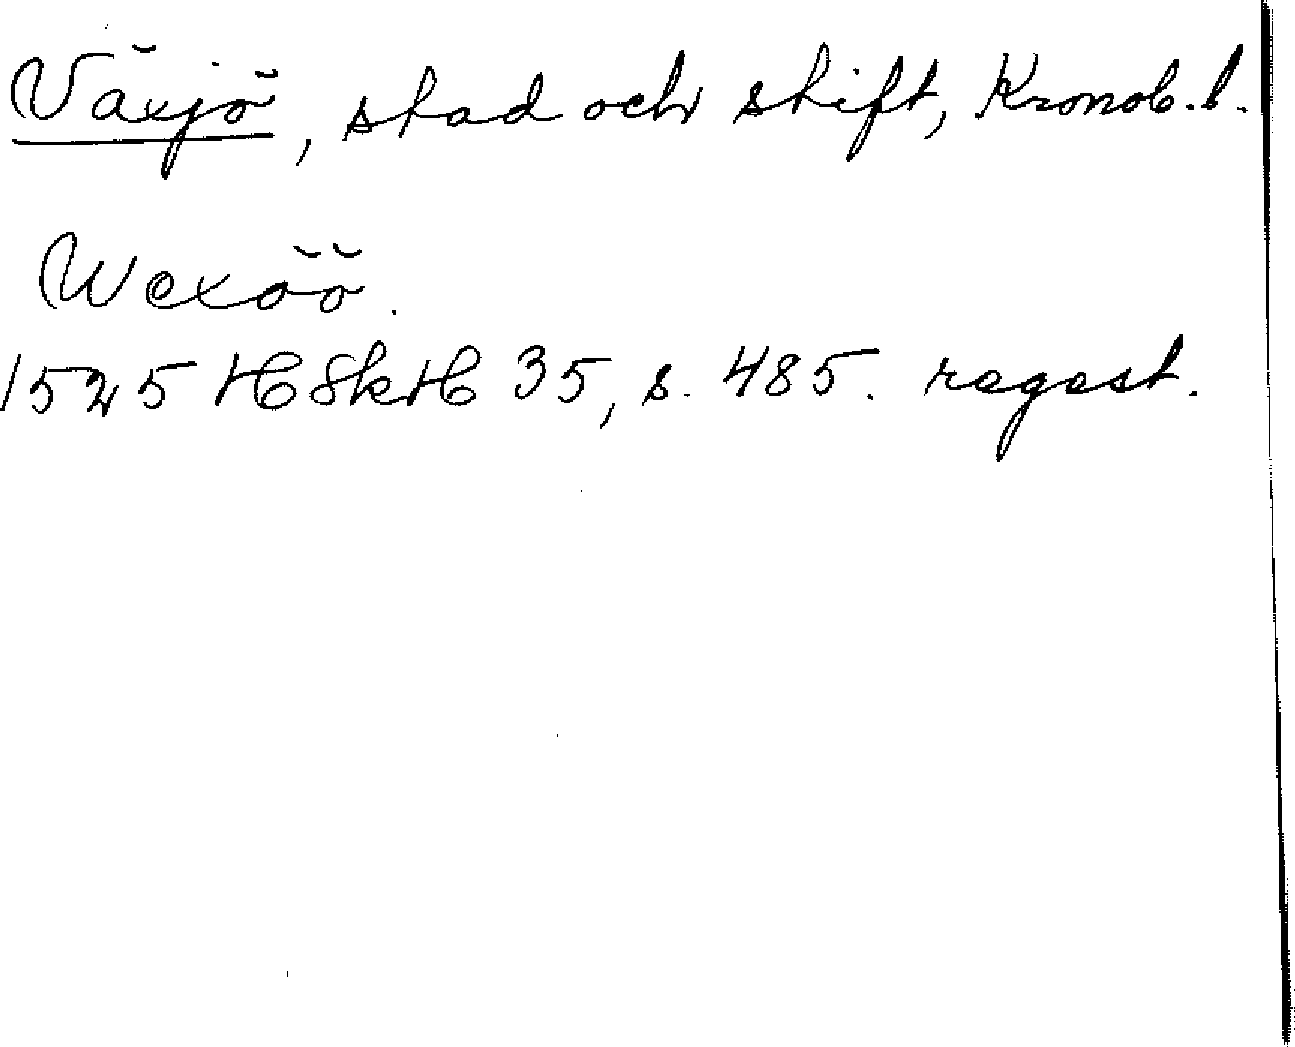 Växjö, stad och stift, Kronob. l.
Wexöö.
1525 HSkH 35, s. 485. regest.